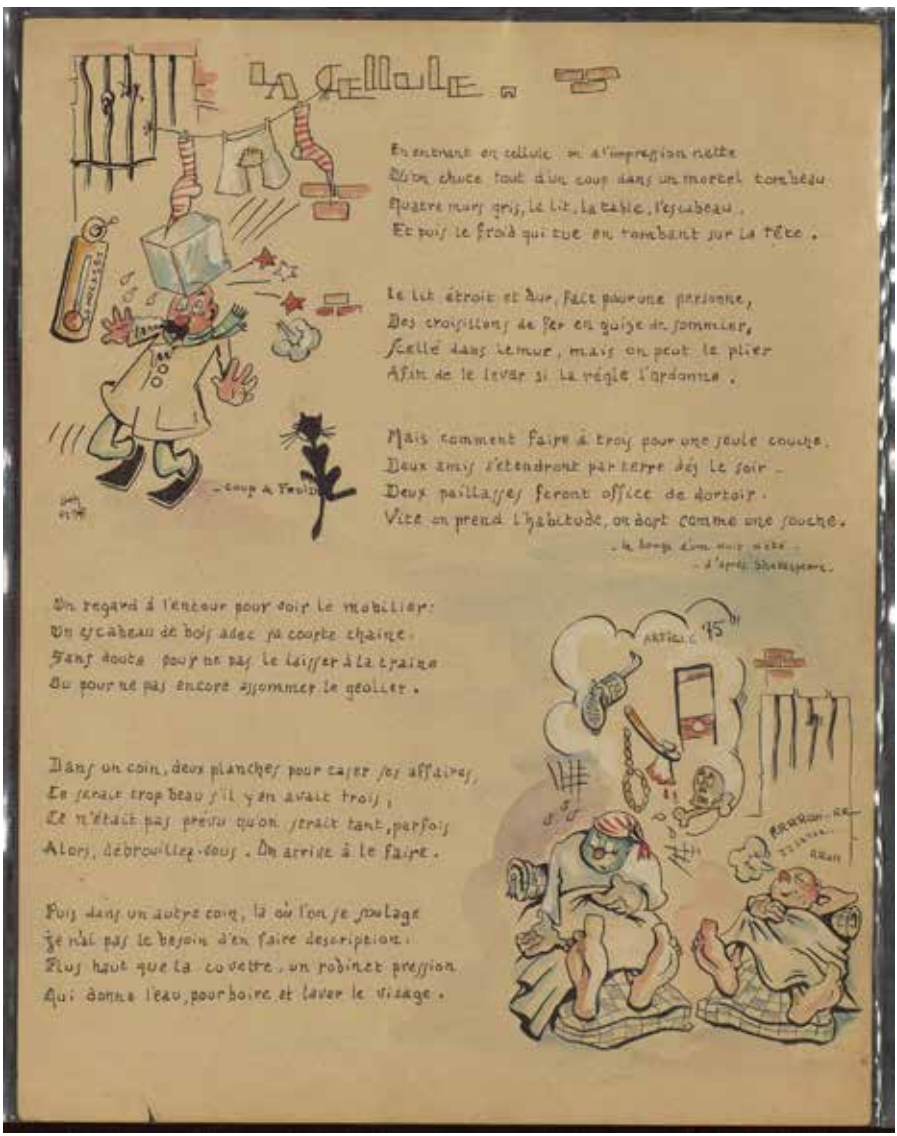 LA CELLULE.
En entrant en cellule on a l'impression nette
Qu'on chute tout d'un coup dans un mortel tombeau
Quatre murs gris, le lit, la table, l'escabeau.
Et puis le froid qui tue en tombant sur la tête.
Le lit étroit et dur, fait pour une personne,
Des croisillons de fer en guise de sommier,
Scellé dans le mur, mais on peut le plier
Afin de le lever si la régle l'ordonne.
Mais comment faire à trois pour une seule couche.
Deux amis s'étendront par terre dés le soir -
Deux paillasses feront office de dortoir.
Vite on prend l'habitude, on dort comme une souche.
- coup de Froid
- le songe d'une nuit d'été -
- d'après Shakespeare.
Un regard à l'entour pour voir le mobilier:
Un escabeau de bois avec sa courte chaine.
Sans doute pour ne pas le laisser à la traine
Ou pour ne pas encore assommer le geolier.
ARTICLE 75
Dans un coin, deux planches pour caser ses affaires,
Ce serait trop beau s'il y en avait trois,
Ce n'était pas prévu qu'on serait tant, parfois
Alors, débrouillez-vous. On arrive à le faire.
RRRRON-RR-
RRON
Puis dans un autre coin, là où l'on se soulage
je n'ai pas le besoin d'en faire description.
Plus haut que la cuvette, un robinet pression
Qui donne l'eau, pour boire et laver le visage.